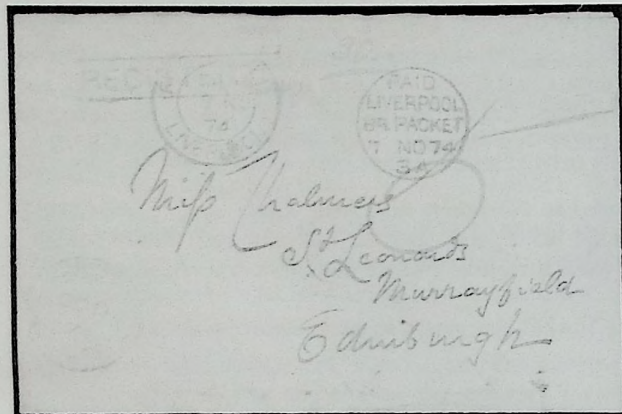 REGISTERED
74
LIVERPOOL
PAID
LIVERPOOL
BR. PACKET
NO 74
3A
Miss Chalmers
St Leonards
Murrayfield
Edinburgh